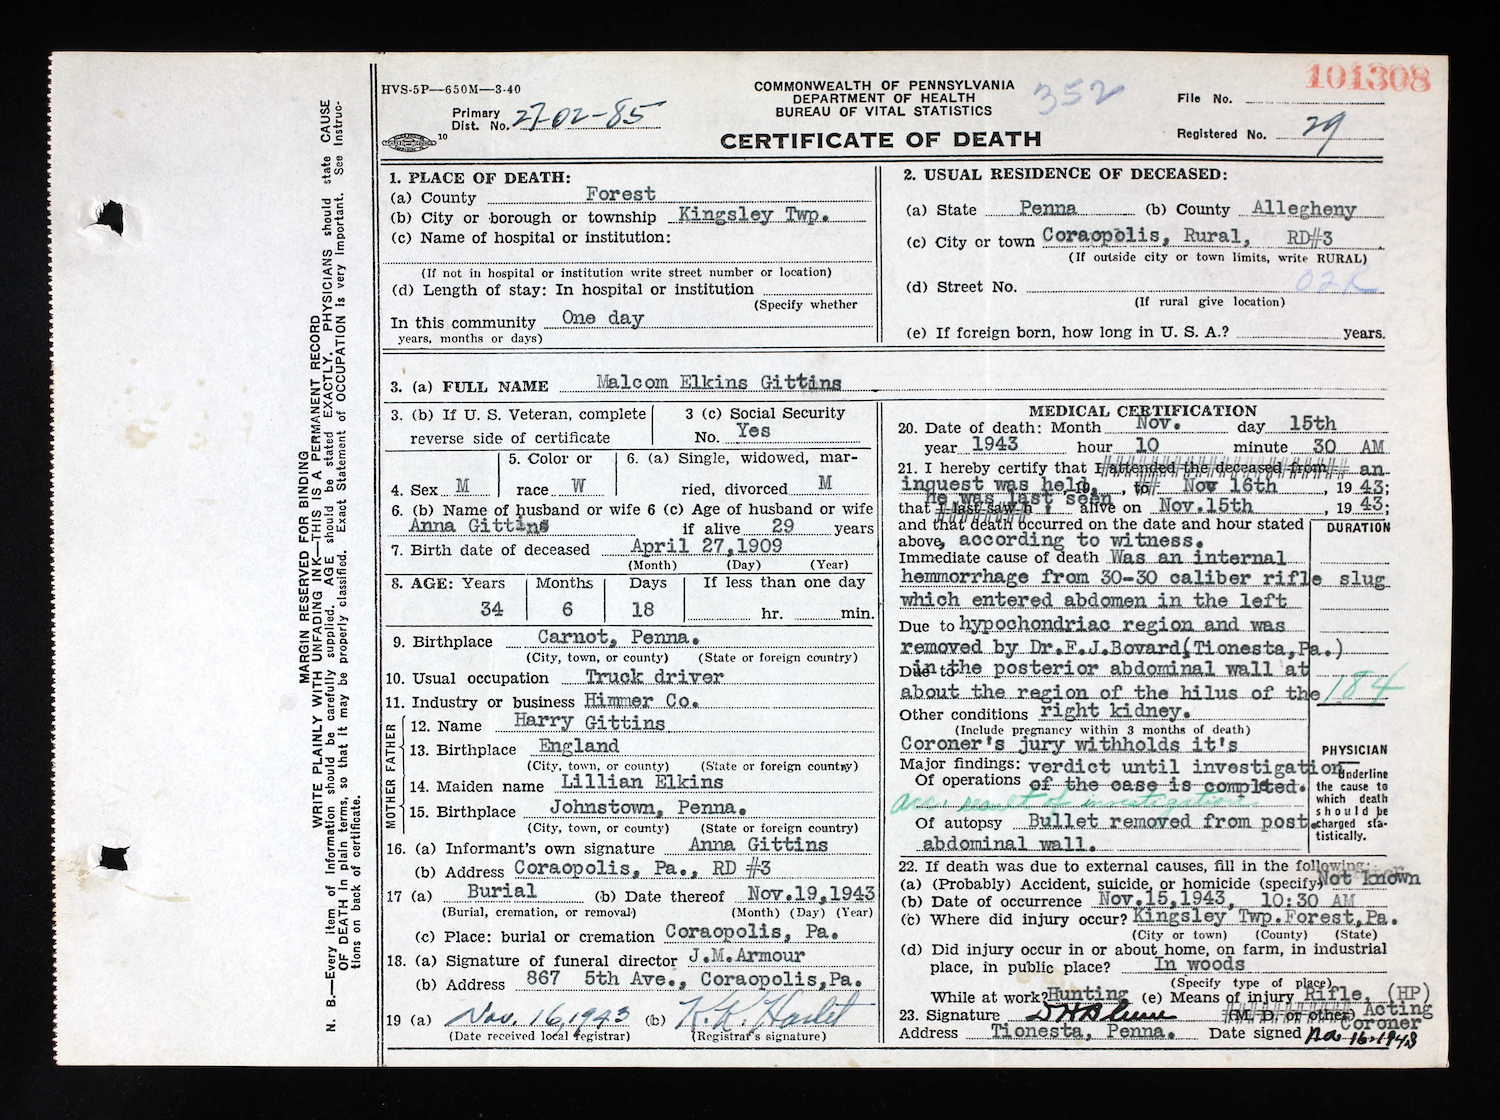 HVS-5P—650M—3-40
Primary
Dist. No. 27-02-85
10
COMMONWEALTH OF PENNSYLVANIA
DEPARTMENT OF HEALTH
BUREAU OF VITAL STATISTICS
352
CERTIFICATE OF DEATH
101308
File No.
Registered No. 29
1. PLACE OF DEATH:
(a) County Forest
(b) City or borough or township Kingsley Twp.
(c) Name of hospital or institution:
(If not in hospital or institution write street number or location)
(d) Length of stay: In hospital or institution
(Specify whether
In this community One day
years, months or days)
2. USUAL RESIDENCE OF DECEASED:
(a) State Penna (b) County Allegheny
(c) City or town Coraopolis, Rural, RD#3
(If outside city or town limits, write RURAL)
(d) Street No. 02R
(If rural give location)
(e) If foreign born, how long in U. S. A.? years.
3. (a) FULL NAME Malcom Elkins Gittins
3. (b) If U. S. Veteran, complete
reverse side of certificate
3 (c) Social Security
No. Yes
4. Sex M
5. Color or
race W
6. (a) Single, widowed, mar-
ried, divorced M
6. (b) Name of husband or wife
Anna Gittins
6 (c) Age of husband or wife
if alive 29 years
7. Birth date of deceased April 27,1909
(Month) (Day) (Year)
8. AGE: Years Months Days If less than one day
34 6 18 hr. min.
9. Birthplace Carnot, Penna.
(City, town, or county) (State or foreign country)
10. Usual occupation Truck driver
11. Industry or business Himmer Co.
FATHER
12. Name Harry Gittins
13. Birthplace England
(City, town, or county) (State or foreign country)
MOTHER
14. Maiden name Lillian Elkins
15. Birthplace Johnstown, Penna.
(City, town, or county) (State or foreign country)
16. (a) Informant's own signature Anna Gittins
(b) Address Coraopolis, Pa., RD #3
17 (a) Burial (b) Date thereof Nov.19,1943
(Burial, cremation, or removal) (Month) (Day) (Year)
(c) Place: burial or cremation Coraopolis, Pa.
18. (a) Signature of funeral director J.M.Armour
(b) Address 867 5th Ave., Coraopolis,Pa.
19 (a) Nov. 16, 1943 (b) K. K. Haslet
(Date received local registrar) (Registrar's signature)
MEDICAL CERTIFICATION
20. Date of death: Month Nov. day 15th
year 1943 hour 10 minute 30 AM
21. I hereby certify that I attended the deceased from an
inquest was held, 19 , to Nov 16th , 19 43;
He was last seen
that I last saw h alive on Nov.15th , 19 43;
and that death occurred on the date and hour stated
above, according to witness.
DURATION
Immediate cause of death Was an internal
hemmorrhage from 30-30 caliber rifle slug
which entered abdomen in the left
Due to hypochondriac region and was
removed by Dr.F.J.Bovard(Tionesta,Pa.)
Due to in the posterior abdominal wall at
about the region of the hilus of the 184
Other conditions right kidney.
(Include pregnancy within 3 months of death)
Coroner's jury withholds it's
Major findings: verdict until investigation
Of operations of the case is complted.
acc. result of investigation
Of autopsy Bullet removed from post.
abdominal wall.
PHYSICIAN
Underline
the cause to
which death
should be
charged sta-
tistically.
22. If death was due to external causes, fill in the following:
(a) (Probably) Accident, suicide, or homicide (specify) Not known
(b) Date of occurrence Nov.15,1943, 10:30 AM
(c) Where did injury occur? Kingsley Twp.Forest,Pa.
(City or town) (County) (State)
(d) Did injury occur in or about home, on farm, in industrial
place, in public place? In woods
(Specify type of place)
While at work? Hunting (e) Means of injury Rifle, (HP)
23. Signature (M. D. or other) Acting
Coroner
Address Tionesta, Penna. Date signed 16-1943
MARGIN RESERVED FOR BINDING
WRITE PLAINLY WITH UNFADING INK—THIS IS A PERMANENT RECORD
N. B.—Every item of information should be carefully supplied. AGE should be stated EXACTLY. PHYSICIANS should state CAUSE
OF DEATH in plain terms, so that it may be properly classified. Exact Statement of OCCUPATION is very important. See Instruc-
tions on back of certificate.